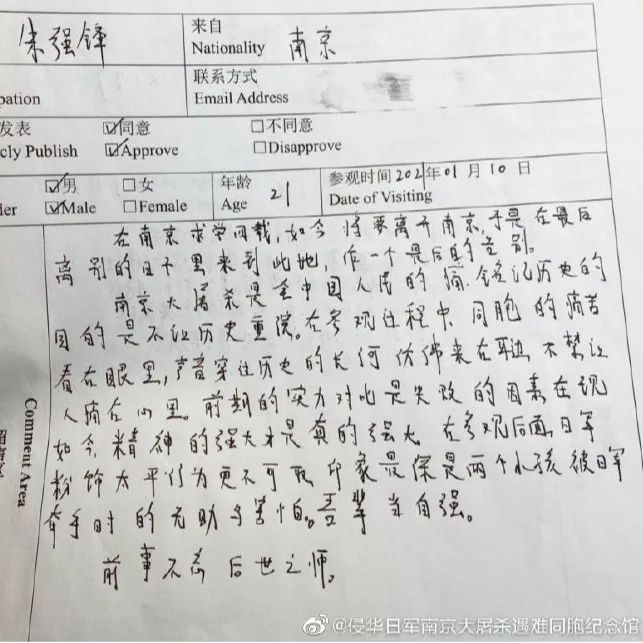 强锋
来自
Nationality 南京
pation
联系方式
Email Address
发表
cly Publish
同意
Approve
不同意
Disapprove
der
男
Male
女
Female
年龄
Age 21
参观时间 2021年01月10日
Date of Visiting
Comment Area
在南京求学四载,如今将要离开南京,于是在最后
离别的日子里来到此地,作一个最后的告别。
南京大屠杀是全中国人民的痛,铭记历史的
目的是不让历史重演。在参观过程中,同胞的痛苦
看在眼里,声音穿过历史的长河仿佛来在耳边,不禁让
人痛在心里。前期的实力对比是失败的因素在现
如今,精神的强大才是真的强大。在参观后面,日军
粉饰太平行为更不可取,印象最深是两个小孩被日军
牵手时的无助与害怕。吾辈当自强。
前事不忘 后世之师。
@侵华日军南京大屠杀遇难同胞纪念馆